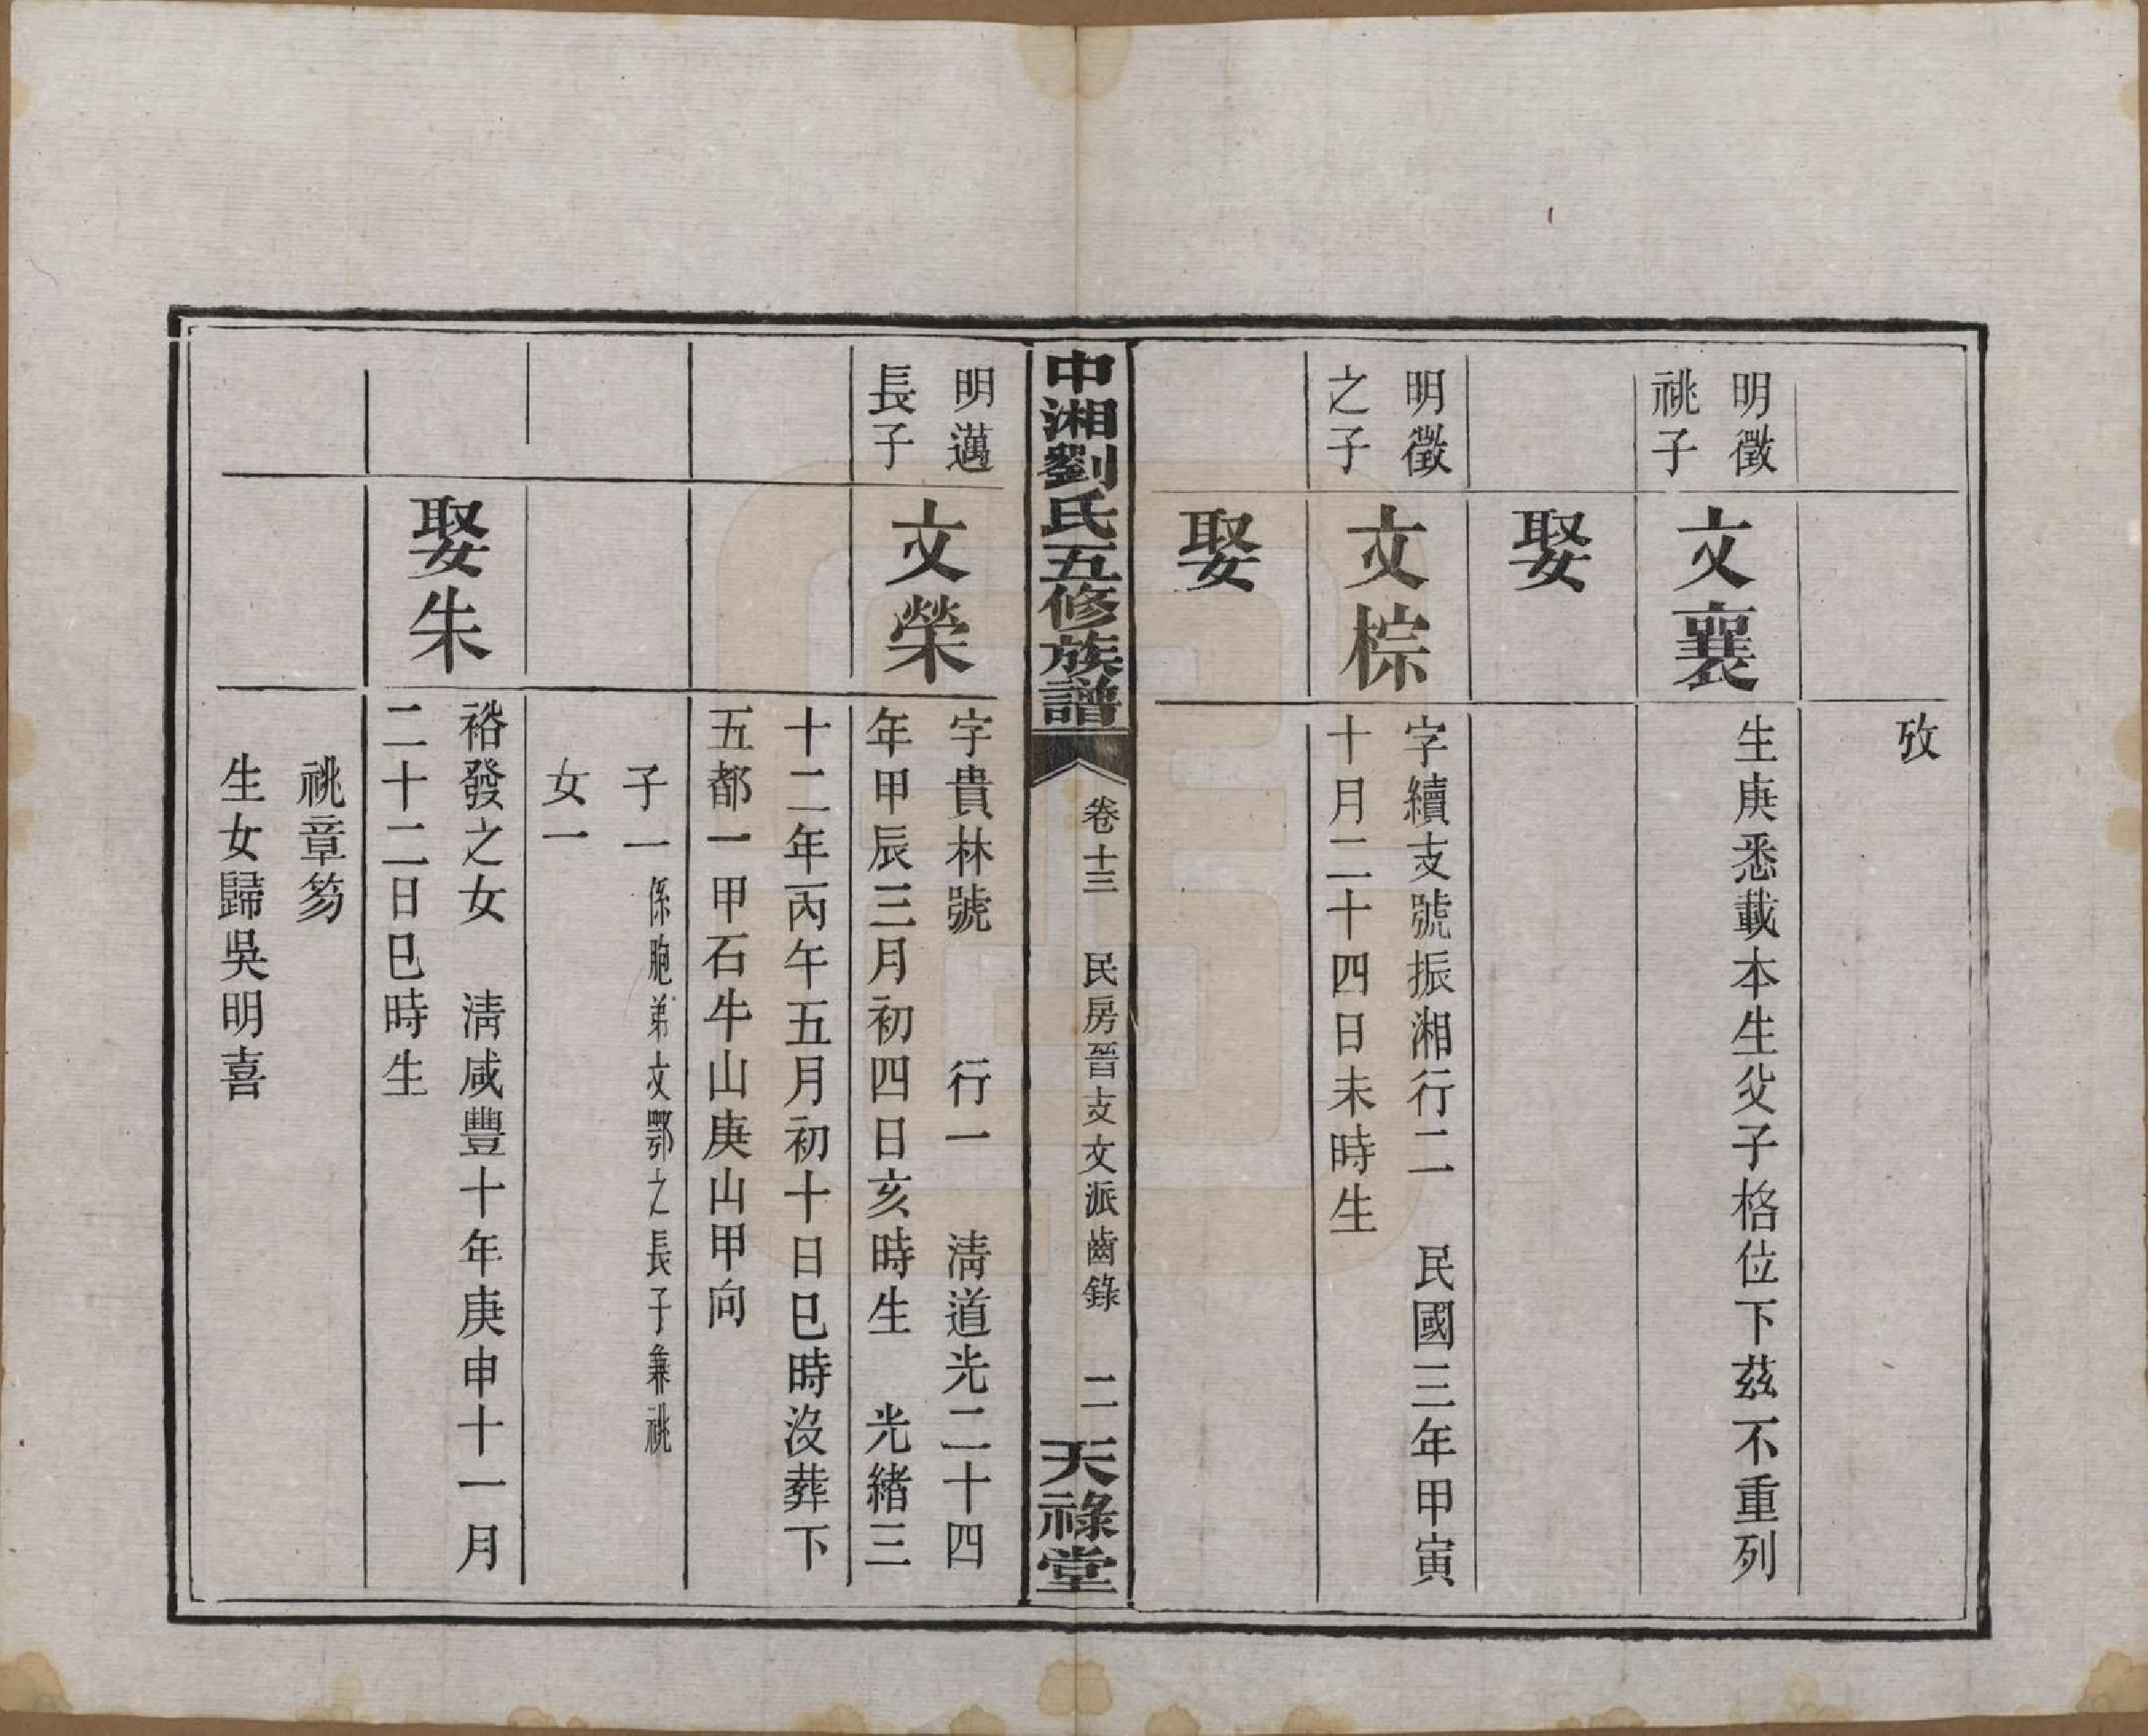 攷
明徵
祧子
文襄
生庚悉載本生父子格位下茲不重列
娶
明徵
之子
文棕
字續支號振湘行二　民國三年甲寅
十月二十四日未時生
娶
中湘劉氏五修族譜
卷十三　民房晉支文派齒錄　二
天祿堂
明邁
長子
文榮
字貴林號　　行一　清道光二十四
年甲辰三月初四日亥時生　光緒三
十二年丙午五月初十日巳時沒葬下
五都一甲石牛山庚山甲向
子一係胞弟文鄂之長子兼祧
女一
娶朱
裕發之女　清咸豐十年庚申十一月
二十二日巳時生
祧章笏
生女歸吳明喜